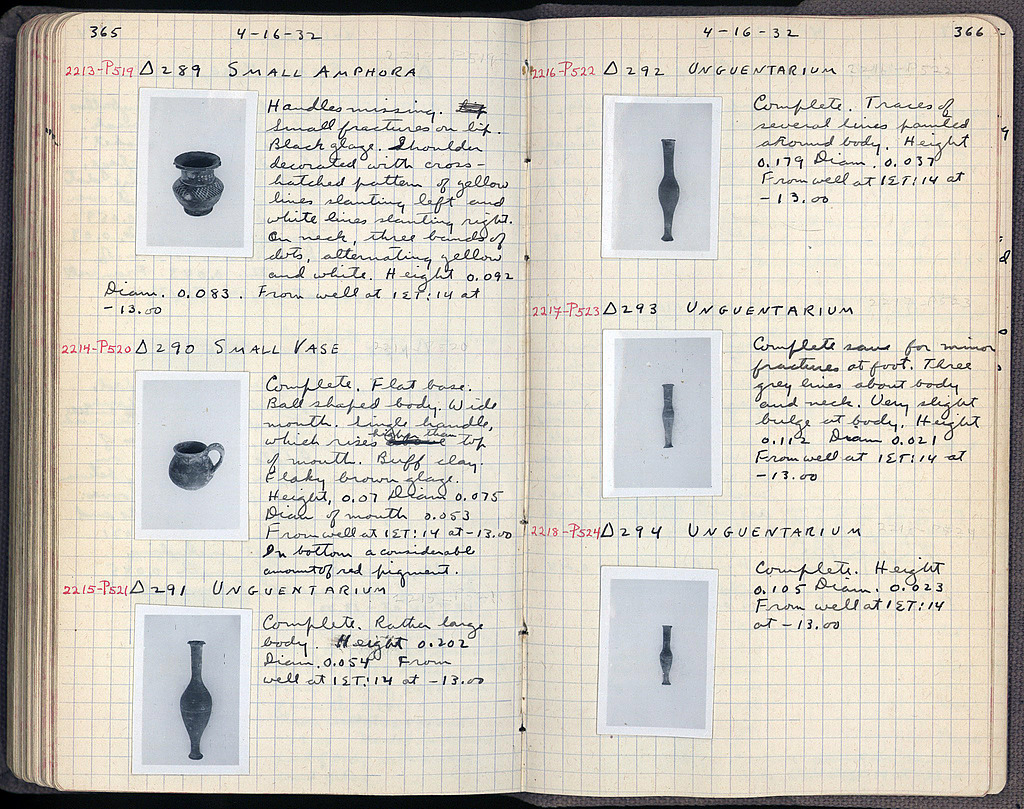 365 4-16-32
2213-P519 Δ289 SMALL AMPHORA
Handles missing.
Small fractures on lip.
Black glaze. Shoulder
decorated with cross-
hatched pattern of yellow
lines slanting left and
white lines slanting right.
On neck, three bands of
dots, alternating yellow
and white. Height 0.092
Diam. 0.083. From well at 1ΣT:14 at
-13.00
2214-P520 Δ290 SMALL VASE
Complete. Flat base.
Ball shaped body. Wide
mouth. Single handle,
which rises higher than top
of mouth. Buff clay.
Flaky brown glaze.
Height, 0.07 Diam 0.075
Diam of mouth 0.053
From well at 1ΣT:14 at -13.00
In bottom a considerable
amount of red pigment.
2215-P521 Δ291 UNGUENTARIUM
Complete. Rather large
body. Height 0.202
Diam. 0.054 From
well at 1ΣT:14 at -13.00
4-16-32 366
2216-P522 Δ292 UNGUENTARIUM
Complete. Traces of
several lines painted
around body. Height
0.179 Diam. 0.037
From well at 1ΣT:14 at
-13.00
2217-P523 Δ293 UNGUENTARIUM
Complete save for minor
fractures at foot. Three
grey lines about body
and neck. Very slight
bulge at body. Height
0.112 Diam 0.021
From well at 1ΣT:14 at
-13.00
2218-P524 Δ294 UNGUENTARIUM
Complete. Height
0.105 Diam. 0.023
From well at 1ΣT:14
at -13.00